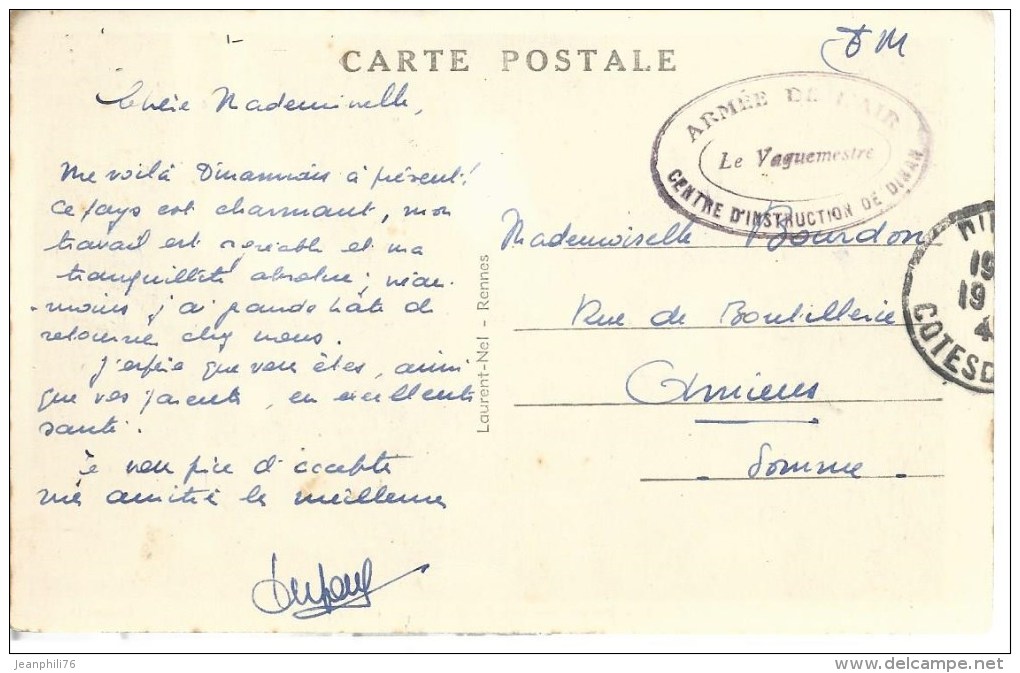 FM
CARTE POSTALE
ARMÉE DE L'AIR
Le Vaguemestre
CENTRE D'INSTRUCTION DE DINAN
Chère Mademoiselle,
Me voilà Dinannais à présent!
Ce pays est charmant, mon
travail est agréable et ma
tranquillité absolue; néan-
-moins j'ai grande hâte de
retourner chez nous.
J'espère que vous êtes, ainsi
que vos parents, en excellente
santé.
Je vous prie d'accepter
mes amitiés les meilleures
Laurent-Nel - Rennes
Mademoiselle Bourdon
Rue de Boutillerie
Amiens
- Somme -
19
19
4
COTES D
jeanphili76
www.delcampe.net